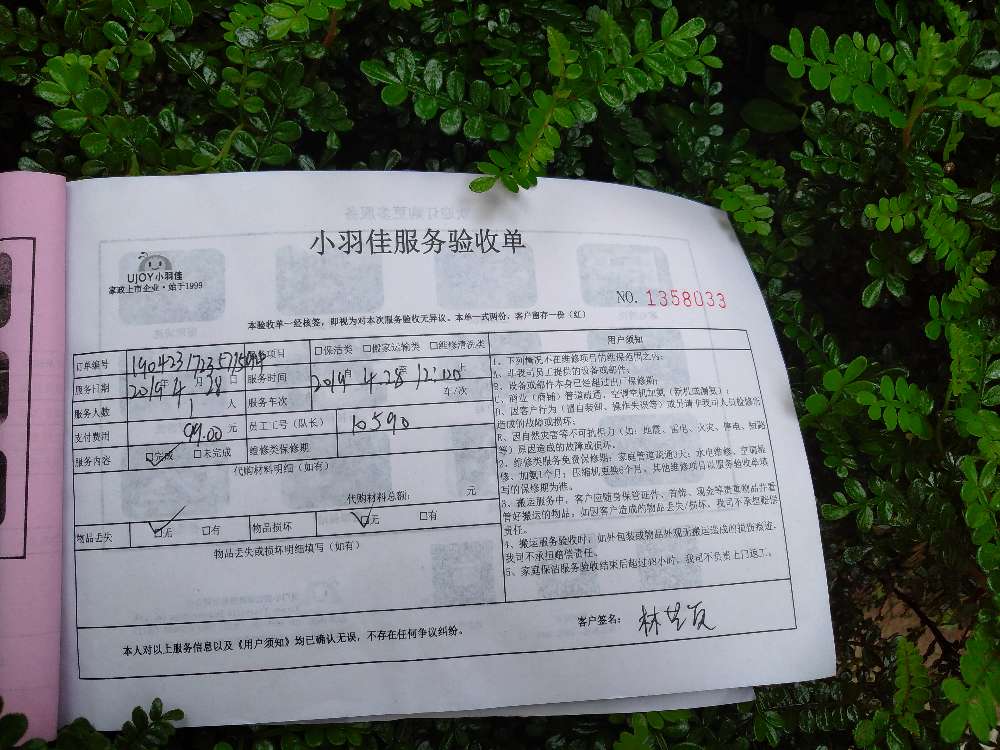 小羽佳服务验收单
UJOY小羽佳
家政上市企业·始于1999
NO. 1358033
本验收单一经核签，即视为对本次服务验收无异议。本单一式两份，客户留存一份（红）
订单编号
项目 □保洁类 □搬家运输类 □维修清洗类
服务日期 2019年4月28日 服务时间 2019年4.28 12:00
服务人数 1 人 服务车次 车/次
支付费用 99.00 元 员工工号（队长） 10590
服务内容 □完成 □未完成 维修类保修期
代购材料明细（如有）
代购材料总额： 元
物品丢失 □无 □有 物品损坏 □无 □有
物品丢失或损坏明细填写（如有）
用户须知
1、下列情况不在维修项目的维保范围之内：
A、非我司员工提供的设备或部件。
B、设备或部件本身已经超过出厂保修期；
C、商业（商铺）管道疏通、空调空机加氨（新机或漏氨）；
D、因客户行为（擅自装卸、操作失误等）或另请非我司人员检修而
造成的故障或损坏。
E、因自然灾害等不可抗拒力（如：地震、雷电、火灾、
等）原因造成的故障或损坏。
2、维修类服务免费保修期：家庭管道疏通3天；水电维修、空调维
修、加氨1个月；压缩机更换6个月，其他维修项目以服务验收单填
写的保修期为准。
3、搬运服务中，客户应随身保管证件、首饰、现金等贵重物品并看
管好搬运的物品，如因客户造成的物品丢失/损坏，我司不承担赔偿
责任。
4、搬运服务验收时，如外包装或物品外观无搬运造成的损伤痕迹，
我司不承担赔偿责任。
5、家庭保洁服务验收结束后超过48小时，我司不负责上门返工。
本人对以上服务信息以及《用户须知》均已确认无误，不存在任何争议纠纷。
客户签名：